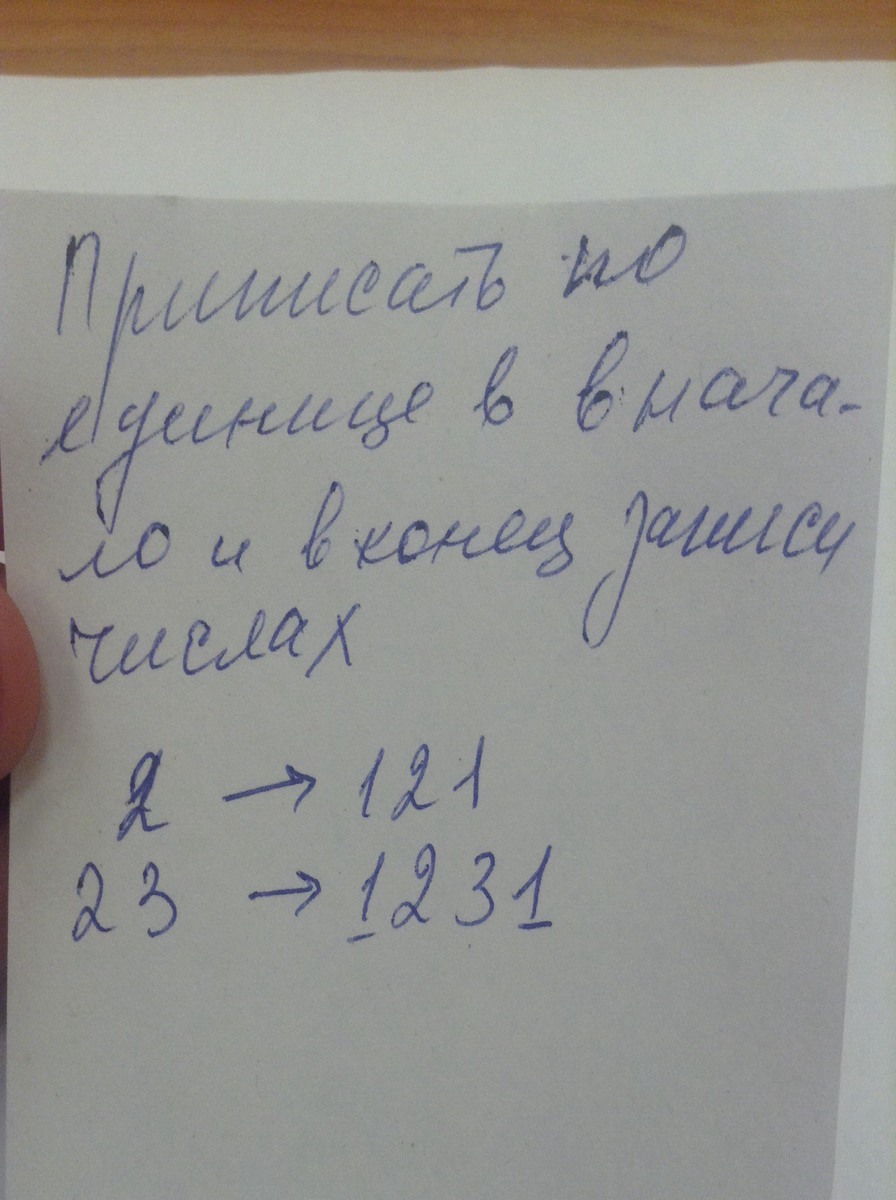 Приписать по
единице в в нача-
ло и в конец записи
числах
2 → 121
23 → 1231